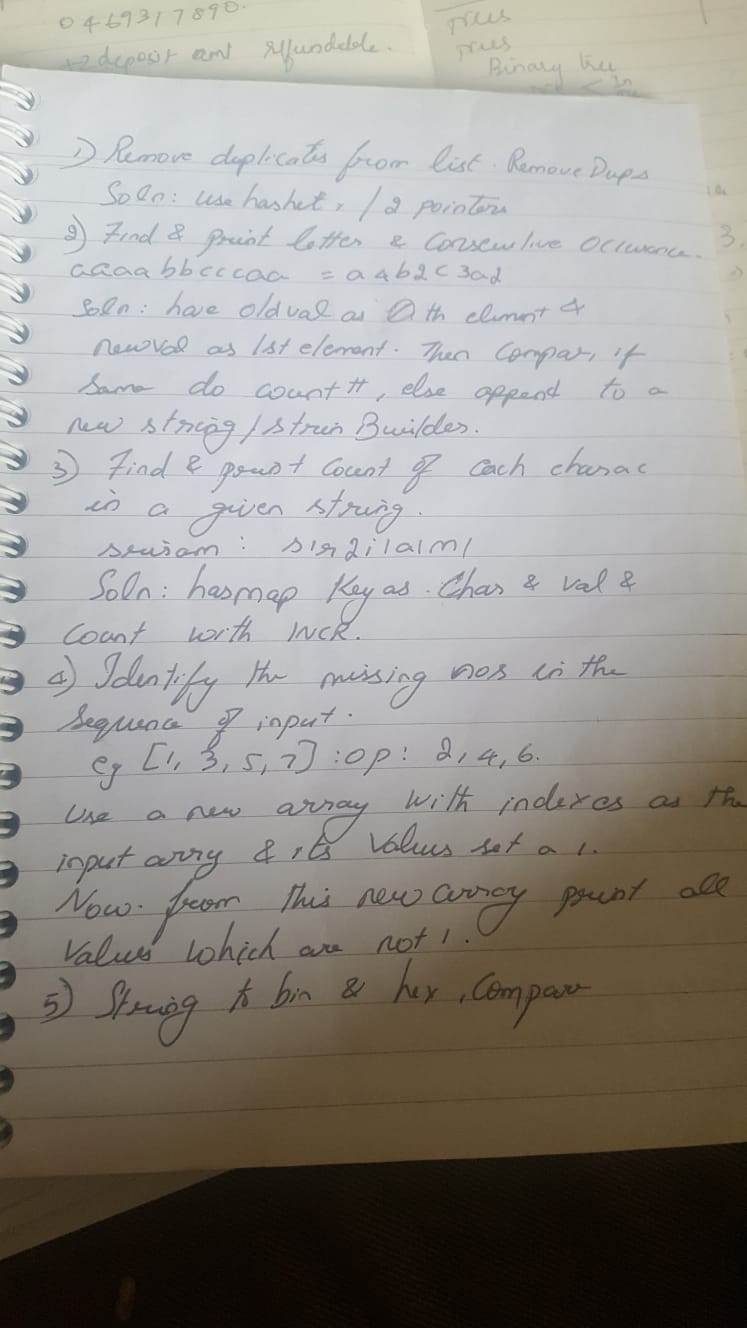 0469317890.
deposit amt refundable.
Trees
Trees
Binary tree
1) Remove duplicates from list. RemoveDups
Soln: use hashet, / 2 pointers
2) Find & print letter & Consecutive Occurance.
aaaabbcccaa = a4b2c3a2
Soln: have oldval as 0th element &
newval as 1st element. Then Compar, if
same do count++, else append to a
new string / Strin Builder.
3) Find & print Count of each charac
in a given string.
s1r2i1a1m1
Soln: hasmap Key as Char & val &
Count with INCR.
4) Identify the missing nos in the
Sequence of input.
eg [1, 3, 5, 7] : op: 2, 4, 6.
Use a new array with indexes as the
input arry & its Values set a 1.
Now from this new array print all
Values which are not 1.
5) String to bin & hex, Compare